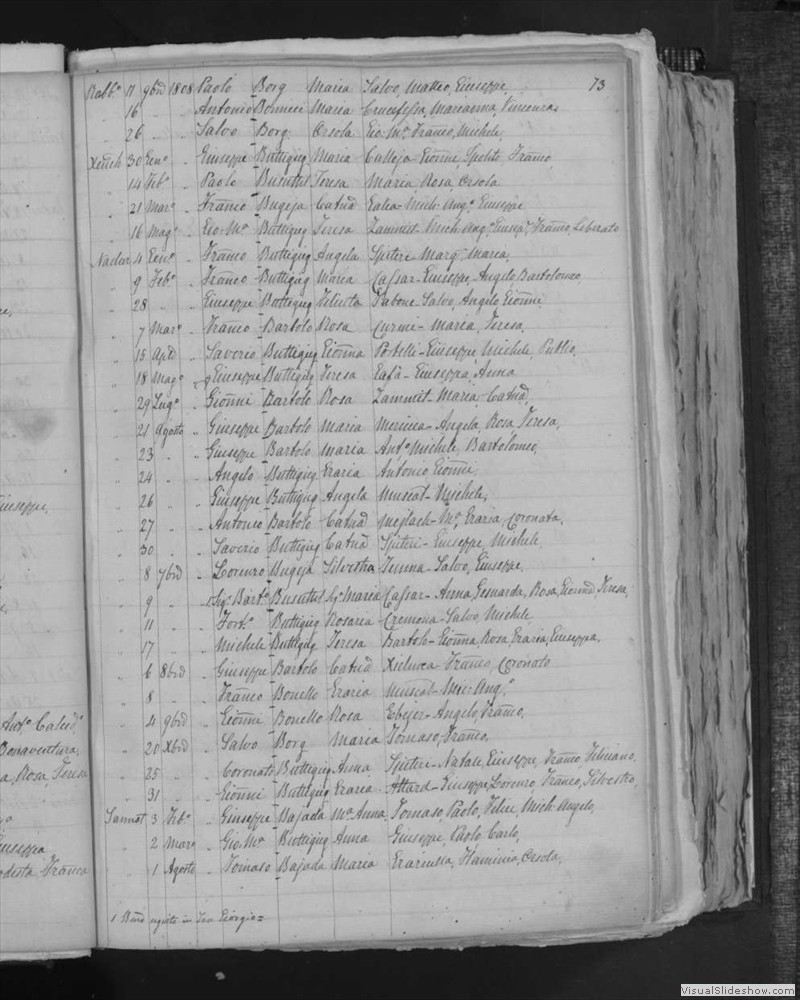 73
Balb.ª 11 9brē 1808 Paolo Borg Maria Salvo, Matteo, Giuseppe,
16 " " Antonio Bonnici Maria Crucifissa, Marianna, Vincenza
26 " " Salvo Borg Orsola Gio: Mª, Franco, Michele,
Xeuch 30 Gen.º " Giuseppe Buttigieg Maria Calleja Gionni, Franco,
" 14 Feb.º " Paolo Busuttil Teresa Maria, Rosa, Orsola
" 21 Mar.º " Franco Bugeja Cat.ª Galea - Mich. Ang.º Giuseppe
" 16 Mag.º " Gio: Mª Buttigieg Teresa Zammit Mich. Ang.º, Franco, Liberato
Nadur 4 Gen.º " Franco Buttigieg Angela Spiteri - Marg. Maria,
" 9 Feb.º " Franco Buttigieg Maria Cassar - Giuseppe, Angelo Bartolomeo,
" 28 " " Giuseppe Buttigieg Felicita Tabone Salvo, Angelo Gionni
" 7 Mar.º " Franco Bartolo Rosa Curmi - Maria, Teresa,
" 15 Aple " Saverio Buttigieg Gionna Portelli - Giuseppe Michele, Publio,
" 18 Mag.º " Giuseppe Buttigieg Teresa Giuseppa, Anna
" 29 Lug.º " Gionni Bartolo Rosa Zammit - Maria Cat.ª,
" 21 Agosto " Giuseppe Bartolo Maria Angela, Rosa Teresa,
" 23 " " Giuseppe Bartolo Maria Ant.º Michele, Bartolomeo,
" 24 " " Angelo Buttigieg Graria Antonio Gionni,
" 26 " " Giuseppe Buttigieg Angela Muscat - Michele,
" 27 " " Antonio Bartolo Cat.ª Mejlach - Mª, Graria, Coronata,
" 30 " " Saverio Buttigieg Cat.ª Spiteri - Giuseppe, Michele
" 8 7brē " Lorenzo Bugeja Silvestra Salvo, Giuseppe,
" 9 " " Sig. Bart.º Busuttil Sig.ª Maria Cassar - Anna, Rosa, Gionna, Teresa,
" 11 " " Fort.º Buttigieg Rosaria Cremona - Salvo, Michele
" 17 " " Michele Buttigieg Teresa Bartolo - Gionna, Rosa, Graria, Giuseppa.
" 6 8brē " Giuseppe Bartolo Cat.ª Xicluca Franco, Coronato
" 8 " " Franco Bonello Graria Muscat - Mic: Ang.º
" 4 9brē " Gionni Bonello Rosa Ebejer - Angelo, Franco,
" 20 Xbrē " Salvo Borg Maria Tomaso, Franco,
" 25 " " Coronato Buttigieg Anna Spiteri - Natale, Giuseppe, Franco
" 31 " " Gionni Buttigieg Graria Attard - Giuseppe, Lorenzo, Franco, Silvestro,
Sannat 3 Feb.º " Giuseppe Bajada Mª Anna Tomaso, Paolo, Felice, Mich. Angelo,
" 2 Mar.º " Gio: Mª Buttigieg Anna Giuseppe, Paolo Carlo,
" 1 Agosto " Tomaso Bajada Maria Flaminia, Orsola,
Giorgio =
Giuseppe,
Ant.º
Bonaventura,
a, Rosa Teresa
Giuseppa
Franca
VisualSlideshow.com